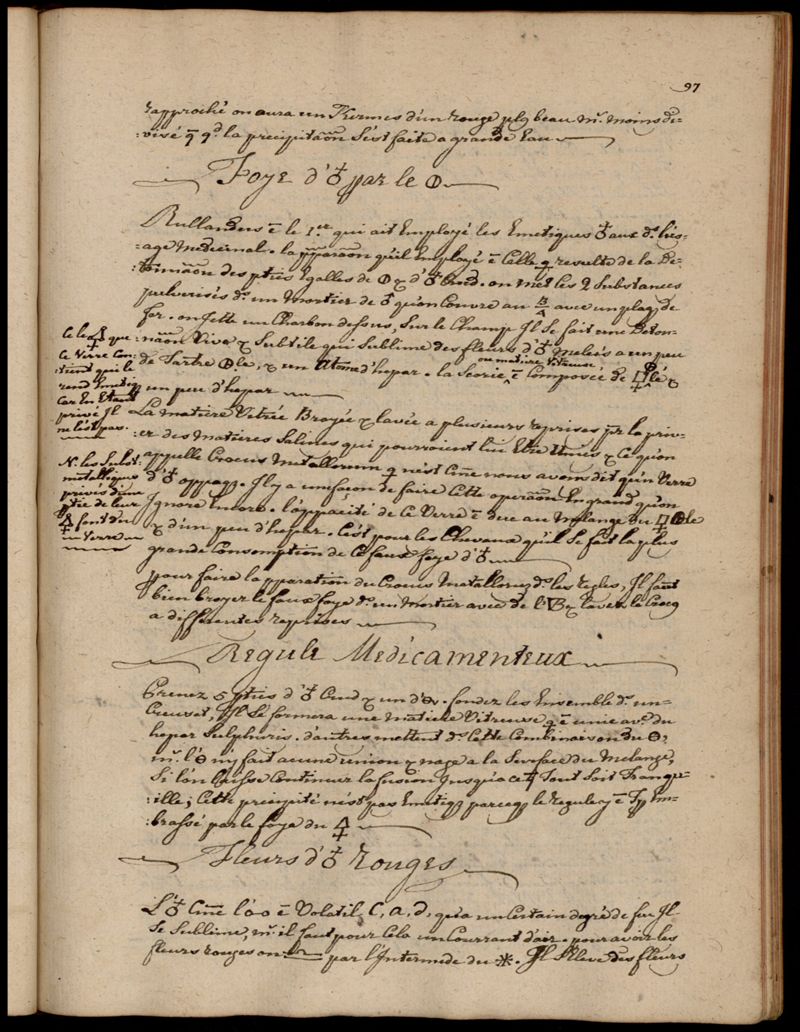 97
rapproché on aura un Kermes d'un rouge plq beau mr. moins di=
:visé q̃ qd. la precipitaõn s'est faite a grande Eau
Foye d'♁ par le 🜕
Rullandus ẽ le 1.er qui ait Employé les Emetiques ♁aux ds. l'us=
=age Medicinal. la ppãraõn qu'il Employé ẽ Celle q̃ resulte de la De=
tonnaõn des pties Egalles de 🜕 & d'♁ Crud. on met les 2 Substances
pulverisés ds. un Mortier de ♁ qu'on Couvre au avec un plaq. de
fer. on Jette un Charbon dessous, Sur le Champ Il Se fait une Deton=
naõn Vive & Subtile qui Sublime des fleurs d'♁ Melées a un peu
de Tartre 🜕le, & un Atome d'hepar. la Scorie ou matiere Vitreuse ẽ Composée de lé &
un peu d'hepar
La matiere Vitrée Broyée & lavée a plusieurs reprises pr. la priv=
er des matieres Salines qui pourroient lui Etre Unies & Ce qu'on
appelle Crocus Metallorum q̃ n'est Com̃e nous avons dit qu'un Verre
d'♁ oppaq. Il y a une façon de faire Cette operaõn En grand qu'on
Ignore Encore. l'oppacité de Ce Verre ẽ due au Melange du 🜕le
& d'un peu d'hepar. C'est pour les Chevaux qu'il Se fait la plus
grande Consomption de Ce faux foye d'♁
pour faire la pparation du Crocus Metallorum ds. les Regles, Il faut
bien broyer le faux foye ds. un Mortier avec de l'🜄 & laver le Crocq
a differentes reprises
Ce le 🜍 que
Ce Verre Con=
tient qui le
rend Emetiq
Car En Etant
privé Il
ne l'est pas.
N. les Subst.
metalliques
privés d'une
ptie de leur
🜍 font du
Verre
Regule Medicamenteux
Prenez 5 pties d'♁ Crud & un d'. fondez les Ensemble ds. un
Creuset, Il Se formera une matiere Vitreuse q̃ ẽ unie av. du
hepar Sulphuris. d'autres mettent ds. Cette Combinaison du 🜔,
mr. l'🜔 n'y fait aucune union & nage a la Surface du Melange,
Si l'on laisse Continuer la fusion Jusqu'a ceq. Tout Soit Tranqu=
=ille; Cette precipité n'est pas Emetiq parceq. le Regule y ẽ Tpp Em=
:brassé par le foye du 🜍
Fleurs d'♁ Rouges
L'♁ Com̃e l'o-o ẽ Volatil, C, a, d, qu'a un Certain degré de feu Il
Se Sublime, mr. il faut pour Cela un Courrant d'air. pour avoir les
fleurs rouges on par l'Intermede du ✳. Il S'Eleve des fleurs